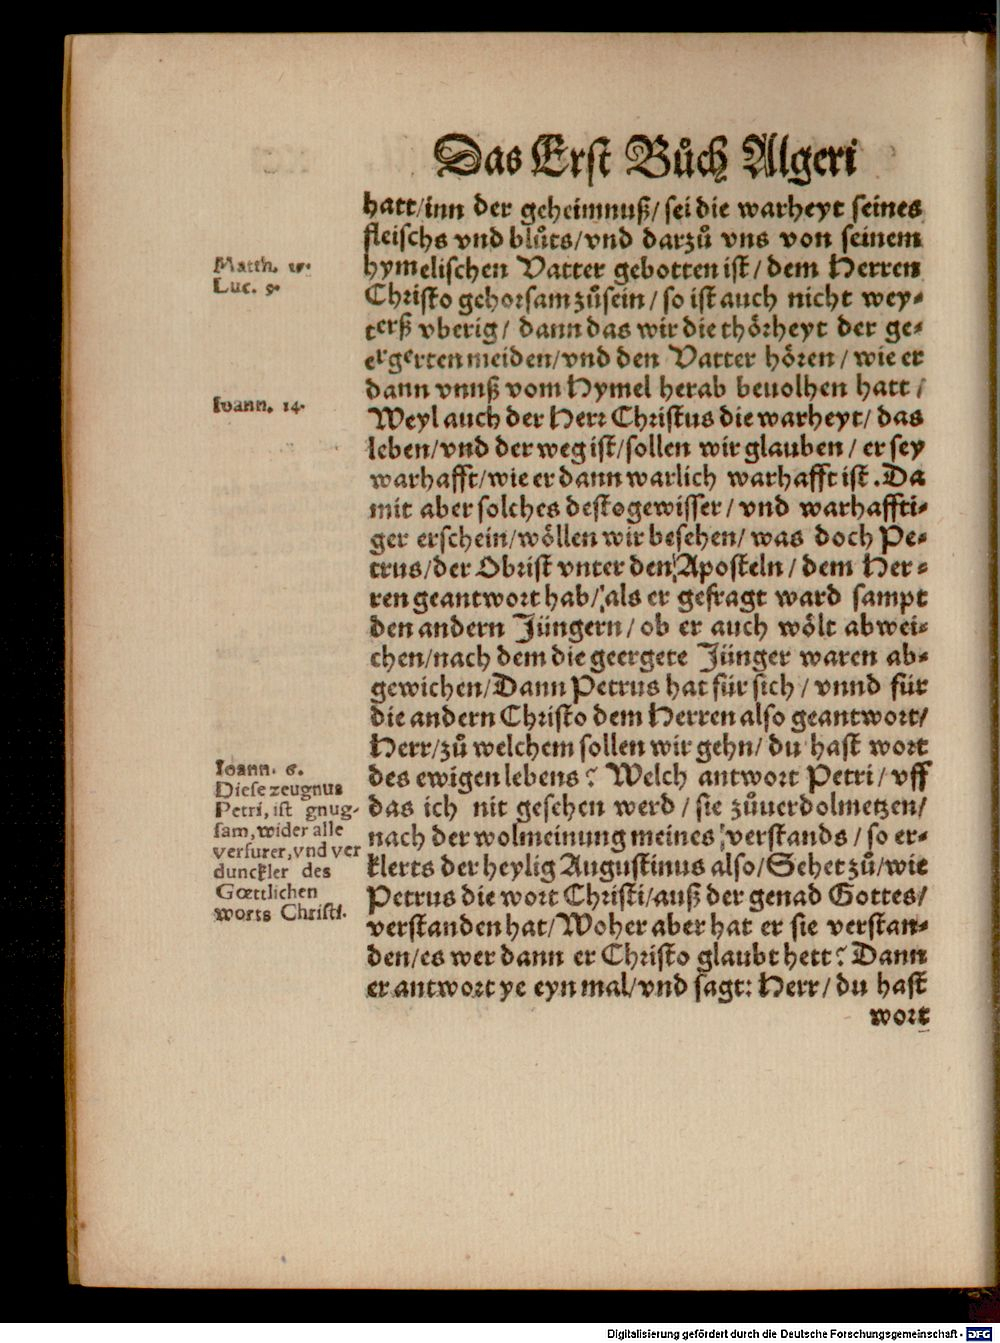 Das Erst Bůch Algeri
hatt/inn der geheimnuß/sei die warheyt seines
fleischs vnd blůts/vnd darzů vns von seinem
hymelischen Vatter gebotten ist/dem Herren
Christo gehorsam zůsein/so ist auch nicht wey-
terß vberig/dann das wir die thörheyt der ge-
ergerten meiden/vnd den Vatter hören/wie er
dann vnnß vom Hymel herab beuolhen hatt/
Weyl auch der Herr Christus die warheyt/das
leben/vnd der weg ist/sollen wir glauben/er sey
warhafft/wie er dann warlich warhafft ist. Da
mit aber solches desto gewisser/vnd warhaffti-
ger erschein/wöllen wir besehen/was doch Pe-
trus/der Obrist vnter den Aposteln/dem Her-
ren geantwort hab/als er gefragt ward sampt
den andern Jüngern/ob er auch wölt abwei-
chen/nach dem die geergete Jünger waren ab-
gewichen/Dann Petrus hat für sich/vnnd für
die andern Christo dem Herren also geantwort/
Herr/zů welchem sollen wir gehn/du hast wort
des ewigen lebens? Welch antwort Petri/vff
das ich nit gesehen werd/sie zůuerdolmetzen/
nach der wolmeinung meines verstands/so er-
klerts der heylig Augustinus also/Sehet zů/wie
Petrus die wort Christi/auß der genad Gottes/
verstanden hat/Woher aber hat er sie verstan-
den/es wer dann er Christo glaubt hett? Dann
er antwort ye eyn mal/vnd sagt: Herr/du hast
wort
Matth.
Luc. 9.
Ioann. 14.
Ioann. 6.
Diese zeugnus
Petri, ist gnug-
sam, wider alle
verfurer, vnd ver
dunckler des
Gœttlichen
worts Christi.
Digitalisierung gefördert durch die Deutsche Forschungsgemeinschaft - DFG